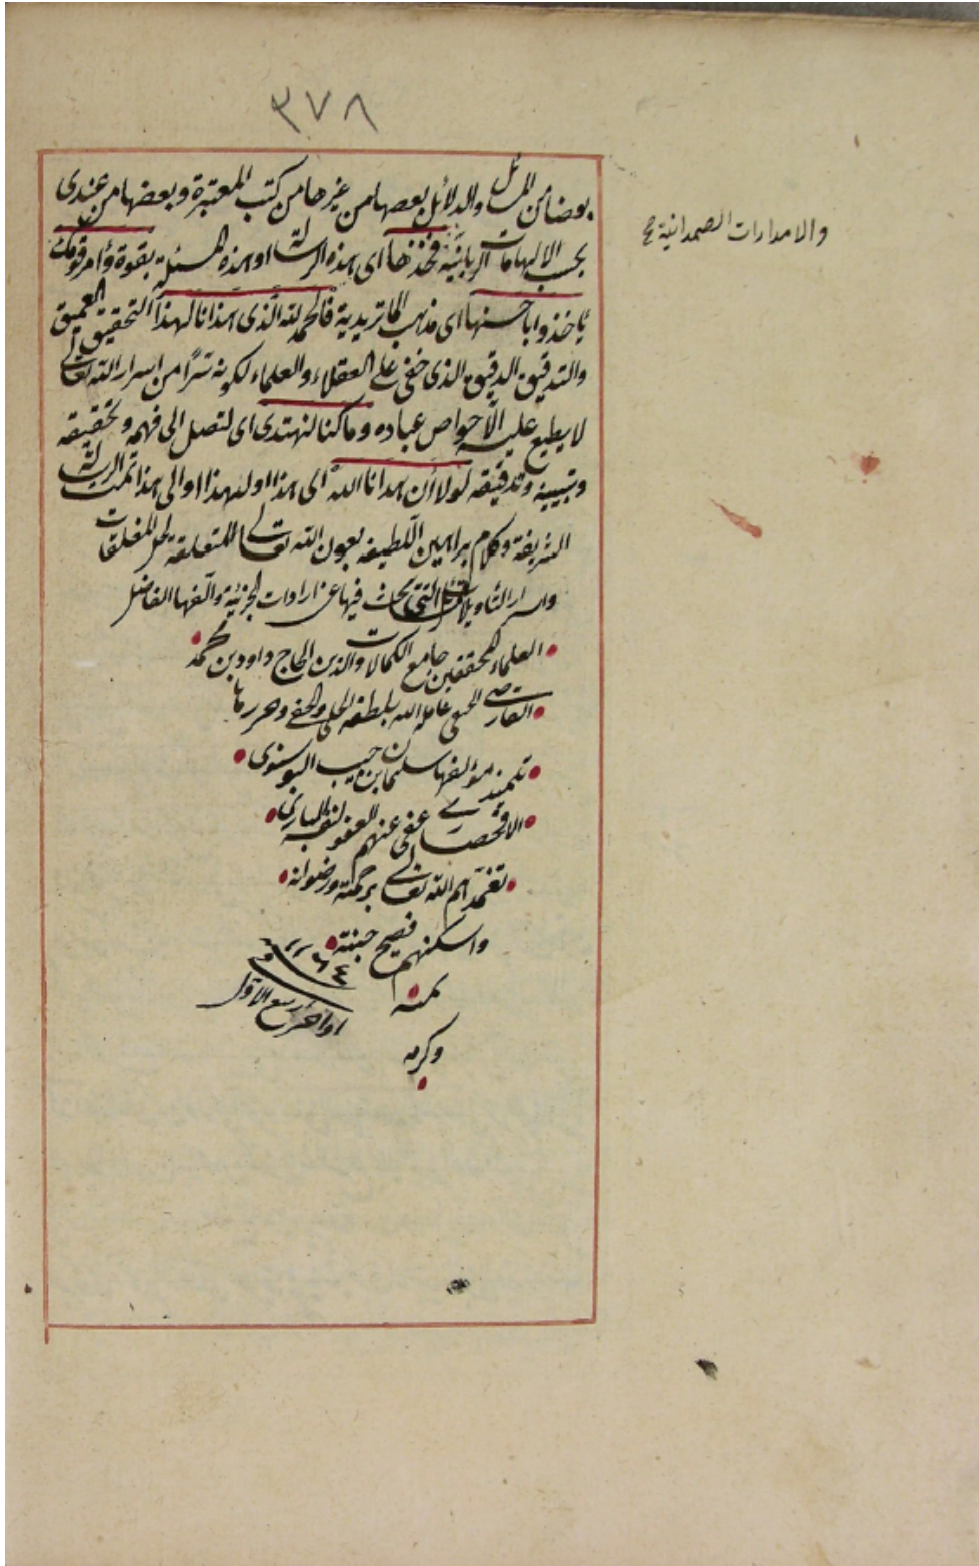 ٣٧٨
بعضا من المسائل والدلائل بعضها من غيرها من كتب المعتبرة وبعضها من عندى
بحسب الالهامات الربانية فخذها اى هذه الرسالة او هذه المسئلة بقوة وأمر قومك
يأخذوا باحسنها اى مذهب الماتريدية فالحمد لله الذى هدانا لهذا التحقيق العميق
والتدقيق الدقيق الذى خفى على العقلاء والعلماء لكونه سرّا من اسرار الله تعالى
لا يطلع عليه الّا خواص عباده وما كنا لنهتدى اى لنصل الى فهمه وتحقيقه
وتبيينه وتدقيقه لولا أن هدانا الله اى هذا او لهذا او الى هذا تمت الرسالة
الشريفة وكلام براهين اللطيفه بعون الله تعالى المتعلقة لحل المغلقات
واسرار التأويلات التى يبحث فيها عن ارادات الجزئية والّفها الفاضل
العلماء المحققين جامع الكمالات والدين الحاج داود بن محمد
القارصى الحنفى عامله الله بلطفه الجلى والخفى وحررها
تلميذ مؤلفها سليمان بن حبيب البوسنوى
الاقحصارى عفى عنهم العفو لنفسه البارى
تغمّدهم الله تعالى برحمته ورضوانه
واسكنهم فسيح جنته
بمنه
وكرمه
١١٦٤
فى
اواخر ربيع الاول
والامدادات الصمدانية صح